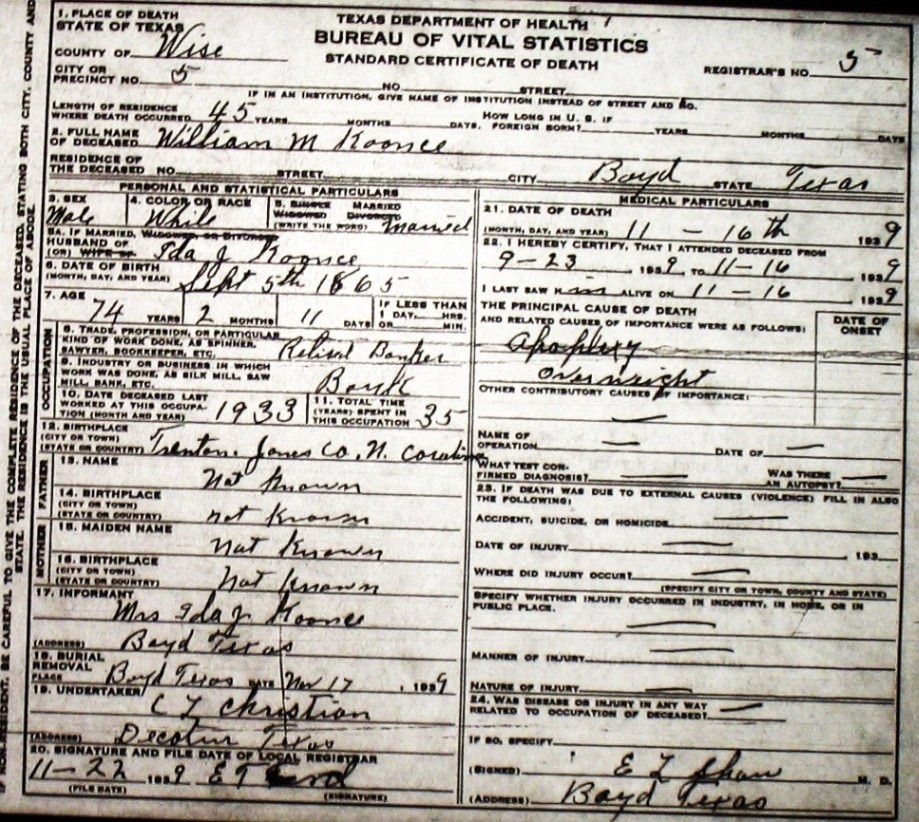 TEXAS DEPARTMENT OF HEALTH
BUREAU OF VITAL STATISTICS
STANDARD CERTIFICATE OF DEATH
1. PLACE OF DEATH
STATE OF TEXAS
COUNTY OF Wise
REGISTRAR'S NO. 5
CITY OR
PRECINCT NO. 5 NO. STREET
IF IN AN INSTITUTION, GIVE NAME OF INSTITUTION INSTEAD OF STREET AND NO.
LENGTH OF RESIDENCE
WHERE DEATH OCCURRED 45 YEARS MONTHS DAYS, HOW LONG IN U. S. IF FOREIGN BORN? YEARS MONTHS DAYS
2. FULL NAME
OF DECEASED William M Koonce
RESIDENCE OF
THE DECEASED NO. STREET CITY Boyd STATE Texas
PERSONAL AND STATISTICAL PARTICULARS
3. SEX Male 4. COLOR OR RACE White 5. SINGLE MARRIED
WIDOWED DIVORCED
(WRITE THE WORD) Married
5A. IF MARRIED, WIDOWED OR DIVORCED
HUSBAND OF
(OR) WIFE OF Ida J Koonce
6. DATE OF BIRTH
(MONTH, DAY, AND YEAR) Sept 5th 1865
7. AGE 74 YEARS 2 MONTHS 11 DAYS IF LESS THAN
1 DAY, HRS.
OR MIN.
OCCUPATION
8. TRADE, PROFESSION, OR PARTICULAR
KIND OF WORK DONE, AS SPINNER,
SAWYER, BOOKKEEPER, ETC. Retired Banker
9. INDUSTRY OR BUSINESS IN WHICH
WORK WAS DONE, AS SILK MILL, SAW
MILL, BANK, ETC. Bank
10. DATE DECEASED LAST
WORKED AT THIS OCCUPA-
TION (MONTH AND YEAR) 1933
11. TOTAL TIME
(YEARS) SPENT IN
THIS OCCUPATION 35
12. BIRTHPLACE
(CITY OR TOWN)
(STATE OR COUNTRY) Trenton. Jones Co. N. Carolina
FATHER
13. NAME Not Known
14. BIRTHPLACE
(CITY OR TOWN)
(STATE OR COUNTRY) not Known
MOTHER
15. MAIDEN NAME Not Known
16. BIRTHPLACE
(CITY OR TOWN)
(STATE OR COUNTRY) Not Known
17. INFORMANT Mrs Ida J Koonce
(ADDRESS) Boyd Texas
18. BURIAL
REMOVAL
PLACE Boyd Texas DATE Nov 17, 1939
19. UNDERTAKER C L Christian
(ADDRESS) Decatur Texas
20. SIGNATURE AND FILE DATE OF LOCAL REGISTRAR
11-22 1939
(FILE DATE) (SIGNATURE)
MEDICAL PARTICULARS
21. DATE OF DEATH
(MONTH, DAY, AND YEAR) 11 - 16th 1939
22. I HEREBY CERTIFY, THAT I ATTENDED DECEASED FROM
9-23 1939, TO 11-16 1939
I LAST SAW him ALIVE ON 11-16 1939
THE PRINCIPAL CAUSE OF DEATH
AND RELATED CAUSES OF IMPORTANCE WERE AS FOLLOWS:
DATE OF
ONSET
Apoplexy
Overweight
OTHER CONTRIBUTORY CAUSES OF IMPORTANCE:
NAME OF
OPERATION DATE OF
WHAT TEST CON-
FIRMED DIAGNOSIS? WAS THERE
AN AUTOPSY?
23. IF DEATH WAS DUE TO EXTERNAL CAUSES (VIOLENCE) FILL IN ALSO
THE FOLLOWING:
ACCIDENT, SUICIDE, OR HOMICIDE
DATE OF INJURY , 193
WHERE DID INJURY OCCUR?
(SPECIFY CITY OR TOWN, COUNTY AND STATE)
SPECIFY WHETHER INJURY OCCURRED IN INDUSTRY, IN HOME, OR IN
PUBLIC PLACE.
MANNER OF INJURY
NATURE OF INJURY
24. WAS DISEASE OR INJURY IN ANY WAY
RELATED TO OCCUPATION OF DECEASED?
IF SO, SPECIFY
(SIGNED) E L Shaw M. D.
(ADDRESS) Boyd Texas
IF NON-RESIDENT, BE CAREFUL TO GIVE THE COMPLETE RESIDENCE OF THE DECEASED, STATING BOTH CITY, COUNTY AND
STATE. THE RESIDENCE IS THE USUAL PLACE OF ABODE.